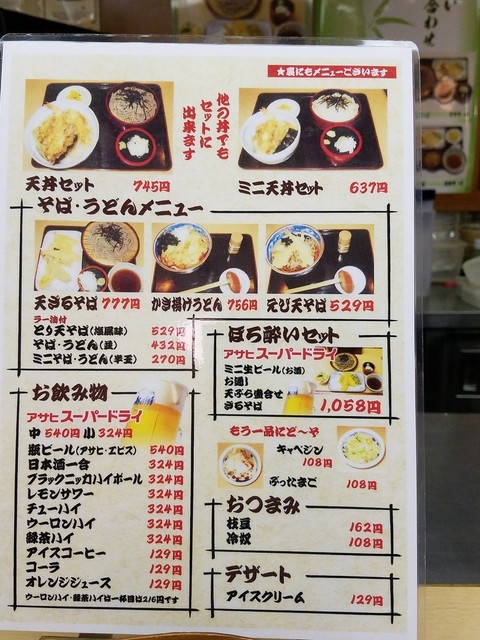 ★裏にもメニューございます
他の丼でも
セットに
出来ます
天丼セット 745円
ミニ天丼セット 637円
そば・うどんメニュー
天ざるそば 777円
かき揚げうどん 756円
えび天そば 529円
ラー油付
とり天そば(塩風味) 529円
そば・うどん(並) 432円
ミニそば・うどん(半玉) 270円
ほろ酔いセット
アサヒスーパードライ
ミニ生ビール(お酒)
天ぷら盛合せ
ざるそば 1,058円
お飲み物
アサヒスーパードライ
中 540円 小 324円
瓶ビール(アサヒ・エビス) 540円
日本酒一合 324円
ブラックニッカハイボール 324円
レモンサワー 324円
チューハイ 324円
ウーロンハイ 324円
緑茶ハイ 324円
アイスコーヒー 129円
コーラ 129円
オレンジジュース 129円
ウーロンハイ・緑茶ハイは一杯目は216円です
もう一品にど〜ぞ
キャベジン
108円
ぶったまご 108円
おつまみ
枝豆 162円
冷奴 108円
デザート
アイスクリーム 129円